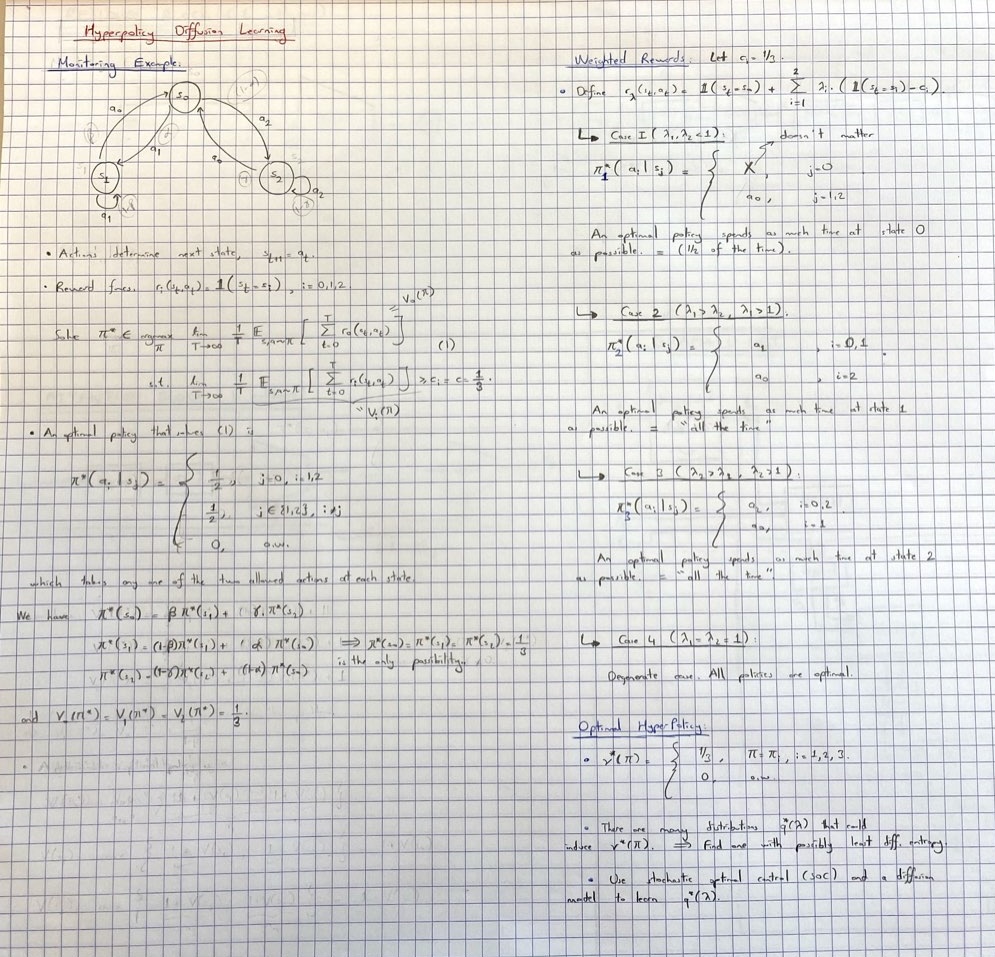 Hyperpolicy Diffusion Learning
Monitoring Example:
s₀
(1-α)
a₀
a₂
β
α
a₁
a₀
s₁
γ
s₂
a₂
1-β
a₁
1-γ
• Actions determine next state, sₜ₊₁ = aₜ.
• Reward fncs. rᵢ(sₜ,aₜ) = 1(sₜ = sᵢ), i = 0,1,2.
V₀(π)
Solve π* ∈ argmax_π lim_{T→∞} 1/T E_{s,a∼π} [ Σ_{t=0}^{T} r₀(sₜ,aₜ) ] (1)
s.t. lim_{T→∞} 1/T E_{s,a∼π} [ Σ_{t=0}^{T} rᵢ(sₜ,aₜ) ] ≥ cᵢ = c = 1/3.
Vᵢ(π)
• An optimal policy that solves (1) is
π*(aᵢ | sⱼ) = { 1/2, j=0, i=1,2
1/2, j ∈ {1,2}, i≠j
0, o.w.
which takes any one of the two allowed actions at each state.
We have π*(s₀) = β π*(s₁) + γ π*(s₂)
π*(s₁) = (1-β)π*(s₁) + (α) π*(s₀) ⟹ π*(s₀) = π*(s₁) = π*(s₂) = 1/3
is the only possibility.
π*(s₂) = (1-γ)π*(s₂) + (1-α) π*(s₀)
and V₀(π*) = V₁(π*) = V₂(π*) = 1/3.
Weighted Rewards: Let cᵢ = 1/3.
• Define r_λ(sₜ,aₜ) = 1(sₜ = s₀) + Σ_{i=1}^{2} λᵢ · (1(sₜ = sᵢ) - cᵢ).
↳ Case I (λ₁, λ₂ < 1): doesn't matter
π₁*(aᵢ | sⱼ) = { X, j=0
a₀, j=1,2
An optimal policy spends as much time at state 0
as possible. = (1/2 of the time).
↳ Case 2 (λ₁ > λ₂, λ₁ > 1).
π₂*(aᵢ | sⱼ) = { a₁, i = 0,1.
a₀, i=2
An optimal policy spends as much time at state 1
as possible. = "all the time"
↳ Case 3 (λ₂ > λ₁, λ₂ > 1).
π₃*(aᵢ | sⱼ) = { a₂, i=0,2.
a₀, i=1
An optimal policy spends as much time at state 2
as possible. = "all the time".
↳ Case 4 (λ₁ = λ₂ = 1):
Degenerate case. All policies are optimal.
Optimal HyperPolicy:
• ν*(π) = { 1/3, π = πᵢ, i = 1,2,3.
0, o.w.
• There are many distributions q*(λ) that could
induce ν*(π). ⟹ Find one with possibly least diff. entropy.
• Use stochastic optimal control (SOC) and a diffusion
model to learn q*(λ).